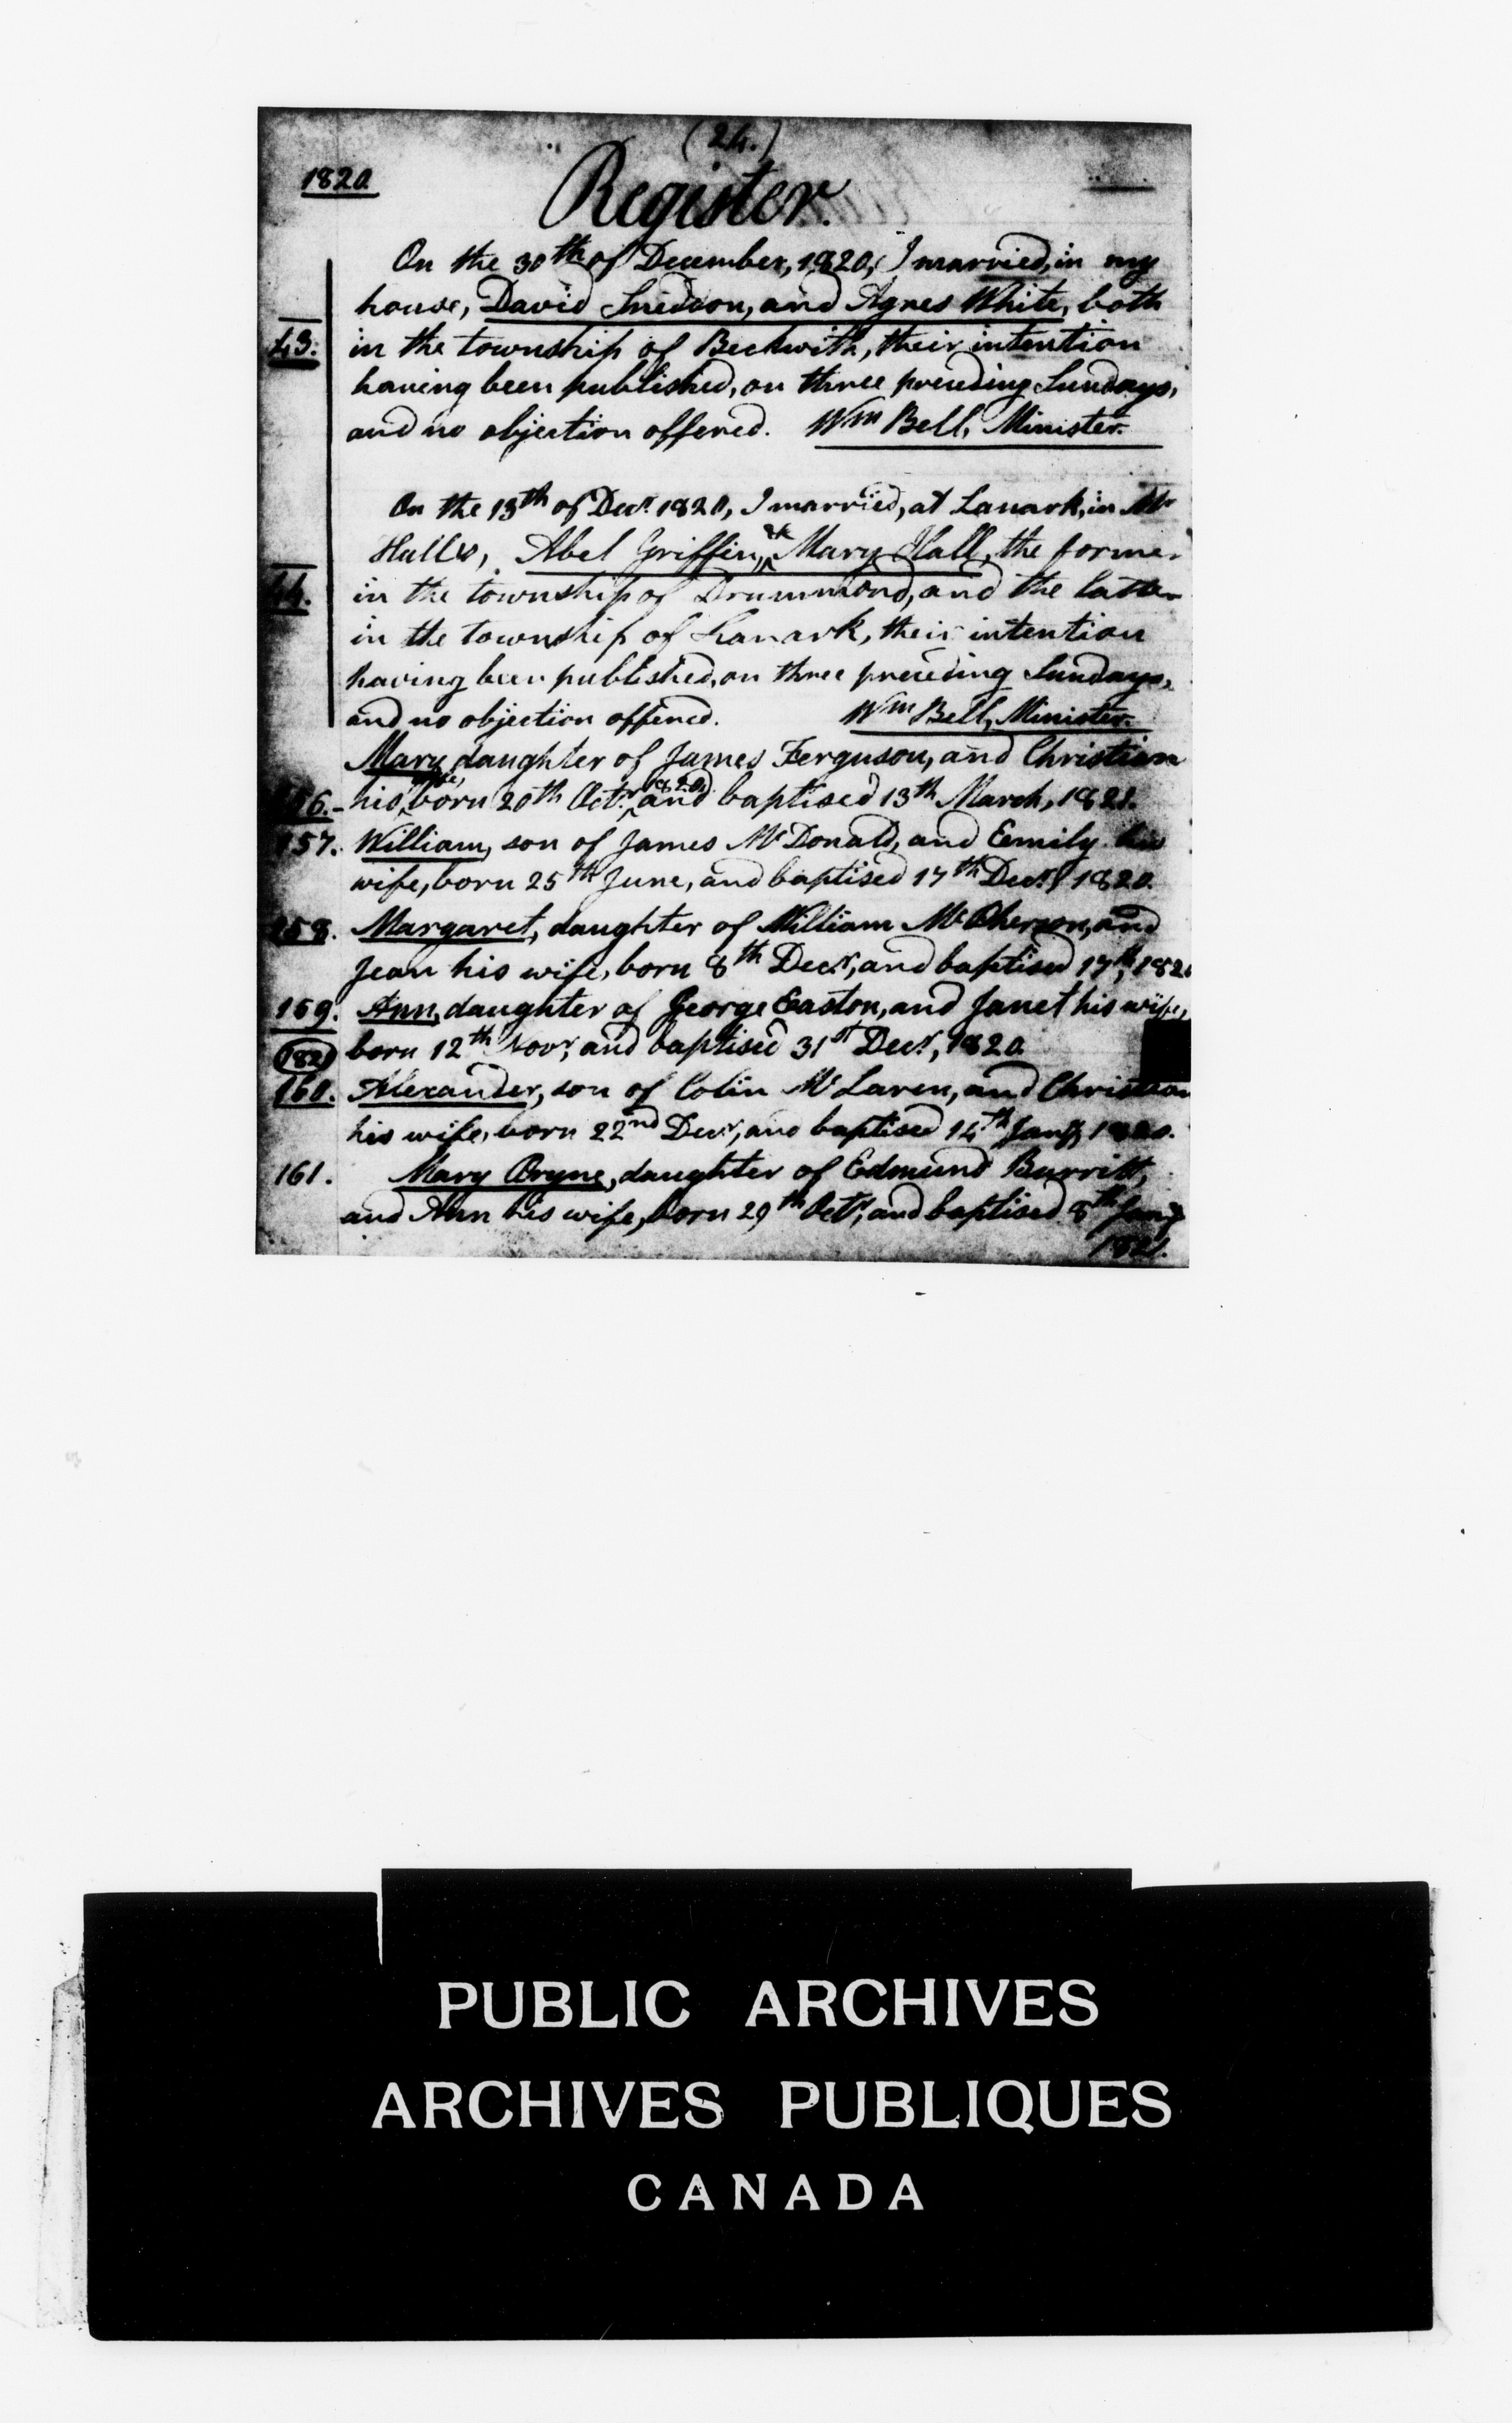 (24.)
1820
Register.
On the 30th of December, 1820, I married, in my
house, David Sneddon, and Agnes White, both
43. in the township of Beckwith, their intention
having been published, on three preceding Sundays,
and no objection offered. Wm Bell, Minister.
On the 13th of Decr. 1820, I married, at Lanark, in Mr
Halls, Abel Griffin, & Mary Hall, the former
44. in the township of Drummond, and the latter
in the township of Lanark, their intention
having been published, on three preceding Sundays,
and no objection offered. Wm Bell, Minister.
Mary daughter of James Ferguson, and Christian
156. his wife, born 20th Octr. 1820, and baptised 13th March, 1821.
157. William, son of James McDonald, and Eemily his
wife, born 25th June, and baptised 17th Decr. 1820.
158. Margaret, daughter of William McPherson, and
Jean his wife, born 8th Decr, and baptised 17th, 1820
159. Ann, daughter of George Easton, and Janet his wife,
1821 born 12th Novr, and baptised 31st Decr, 1820.
160. Alexander, son of Colin McLaren, and Christian
his wife, born 22nd Decr, and baptised 14th Jany
161. Mary Bryne, daughter of Edmund Burritt,
and Ann his wife, born 29th Octr, and baptised 8th Jany
1821.
PUBLIC ARCHIVES
ARCHIVES PUBLIQUES
CANADA